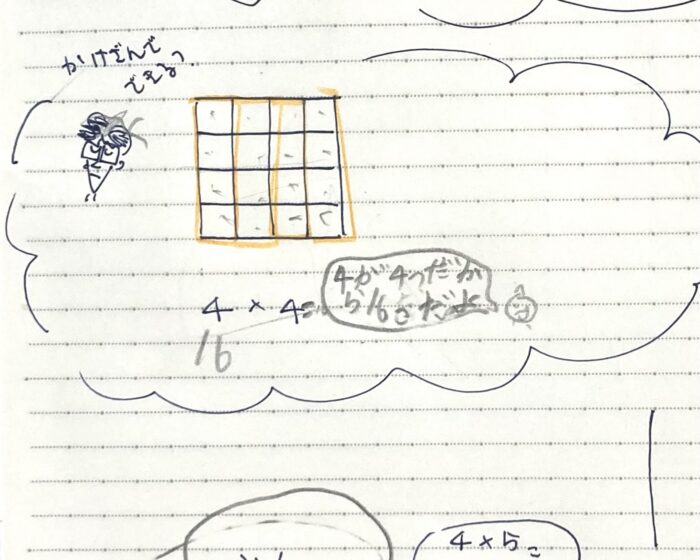 かけざんで
できるっ
4 × 4=
16
4が4つだか
ら16こだよ
4×5=